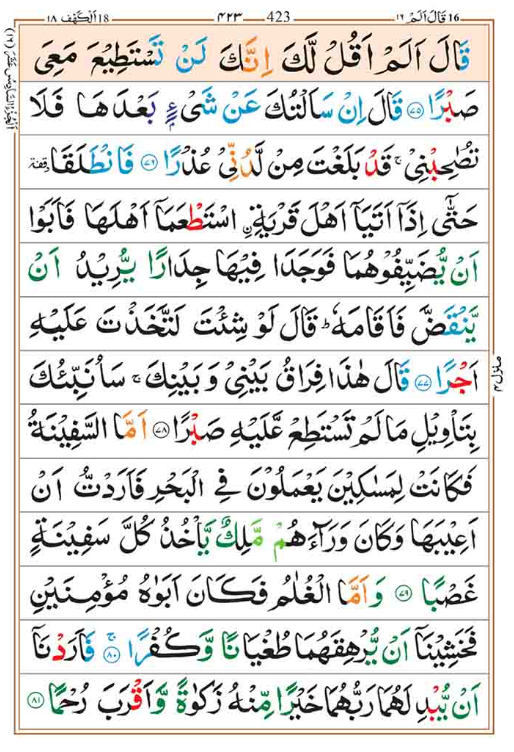 18 اَلْكَهْف ١٨ — ٤٢٣ — 423 — 16 قَالَ اَلَمْ ١٦
قَالَ اَلَمْ اَقُلْ لَّكَ اِنَّكَ لَنْ تَسْتَطِيْعَ مَعِىَ
صَبْرًا ﴿٧٥﴾ قَالَ اِنْ سَاَلْتُكَ عَنْ شَىْءٍۢ بَعْدَهَا فَلَا
تُصٰحِبْنِىْ‌ ۚ قَدْ بَلَغْتَ مِنْ لَّدُنِّىْ عُذْرًا ﴿٧٦﴾ فَانْطَلَقَا وقفة
حَتّٰٓى اِذَاۤ اَتَيَاۤ اَهْلَ قَرْيَةِ ۨاسْتَطْعَمَاۤ اَهْلَهَا فَاَبَوْا
اَنْ يُّضَيِّفُوْهُمَا فَوَجَدَا فِيْهَا جِدَارًا يُّرِيْدُ اَنْ
يَّنْقَضَّ فَاَقَامَهٗ‌ ؕ قَالَ لَوْ شِئْتَ لَتَّخَذْتَ عَلَيْهِ
اَجْرًا ﴿٧٧﴾ قَالَ هٰذَا فِرَاقُ بَيْنِىْ وَبَيْنِكَ‌ ۚ سَاُنَبِّئُكَ
بِتَاْوِيْلِ مَا لَمْ تَسْتَطِعْ عَّلَيْهِ صَبْرًا ﴿٧٨﴾ اَمَّا السَّفِيْنَةُ
فَكَانَتْ لِمَسٰكِيْنَ يَعْمَلُوْنَ فِى الْبَحْرِ فَاَرَدْتُّ اَنْ
اَعِيْبَهَا وَكَانَ وَرَآءَهُمْ مَّلِكٌ يَّاْخُذُ كُلَّ سَفِيْنَةٍ
غَصْبًا ﴿٧٩﴾ وَاَمَّا الْغُلٰمُ فَكَانَ اَبَوٰهُ مُؤْمِنَيْنِ
فَخَشِيْنَاۤ اَنْ يُّرْهِقَهُمَا طُغْيَانًا وَّكُفْرًا‌ ۚ ﴿٨٠﴾ فَاَرَدْنَاۤ
اَنْ يُّبْدِلَهُمَا رَبُّهُمَا خَيْرًا مِّنْهُ زَكٰوةً وَّاَقْرَبَ رُحْمًا ﴿٨١﴾
اَلْجُزْءُ السَّادِسُ عَشَرَ (١٦)
منزل ٤